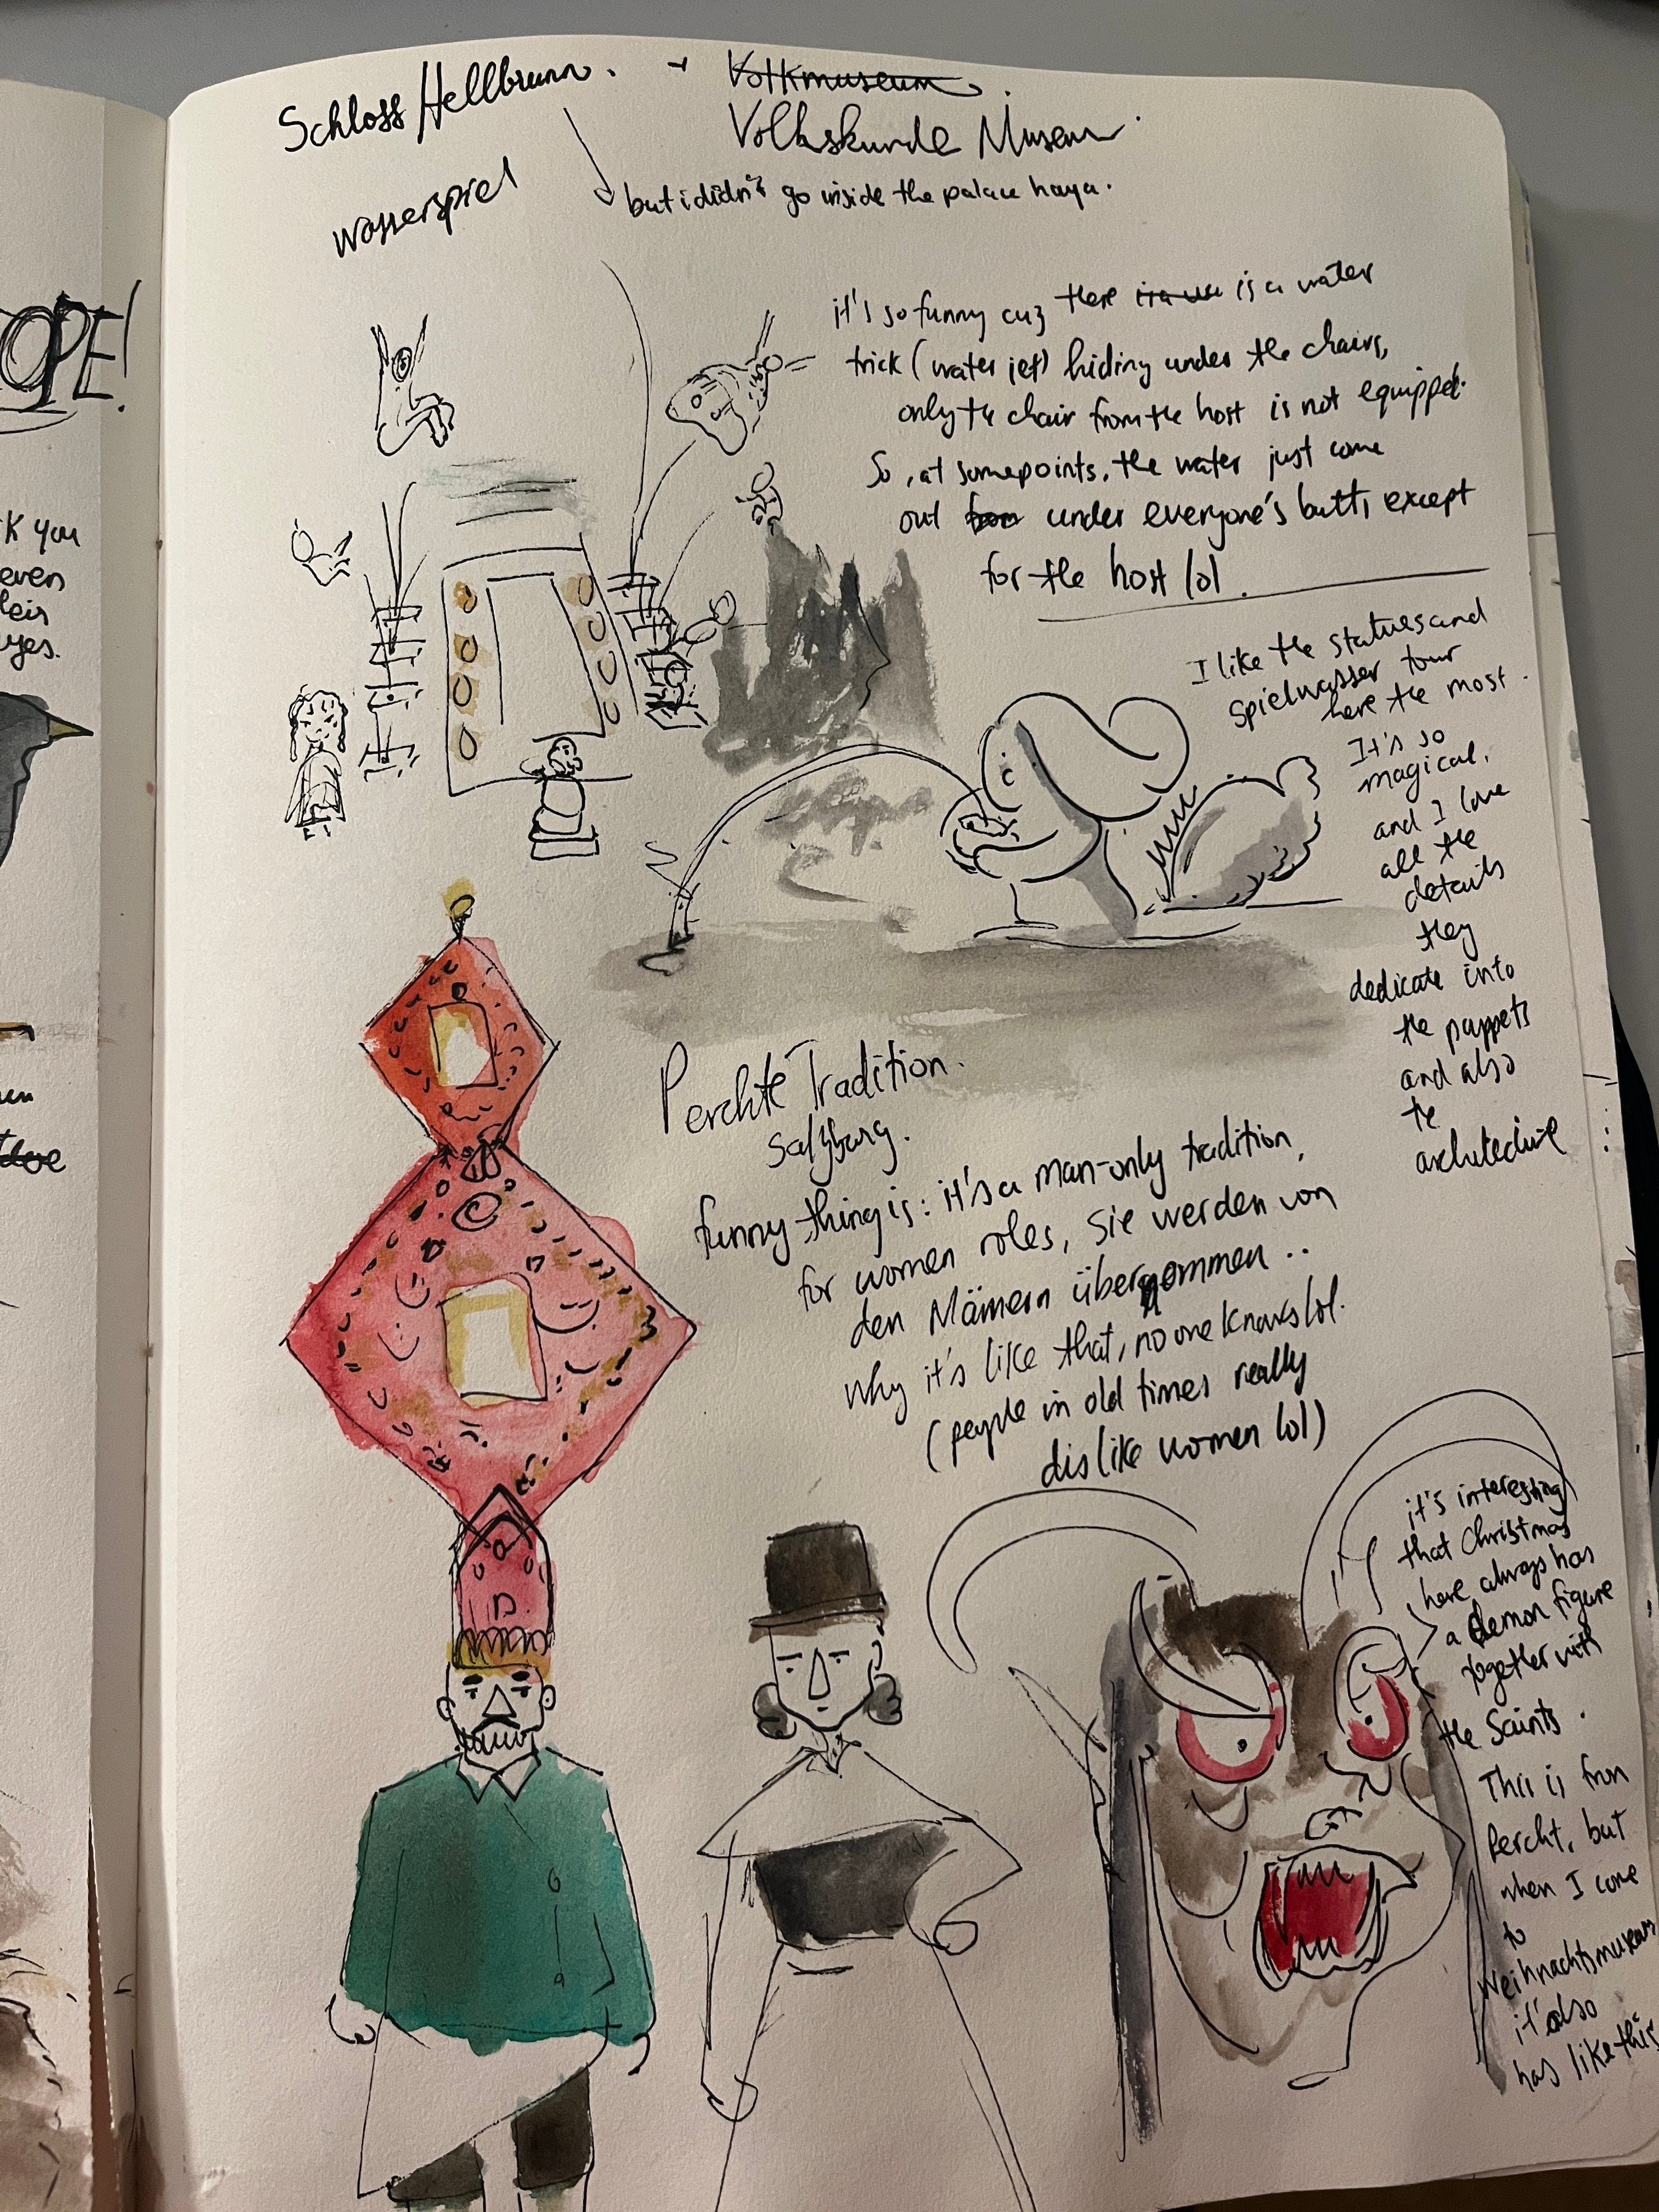 OPE!
k you
even
yes.
Schloss Hellbrunn. + Volkmuseum
Volkskunde Museum.
wasserspiel
but i didn't go inside the palace haya.
it's so funny cuz there is a water
trick (water jet) hiding under the chairs,
only the chair from the host is not equipped.
So, at somepoints, the water just come
out under everyone's butt, except
for the host lol.
I like the statues and
spielwasser tour
here the most.
It's so
magical.
and I love
all the
details
they
dedicate into
the puppets
and also
the
architecture
Perchte Tradition.
Salzburg.
funny thing is: it's a man-only tradition,
for women roles, Sie werden von
den Männern übergenommen ..
why it's like that, no one knows lol.
(people in old times really
dislike women lol)
it's interesting
that Christmas
here always has
a demon figure
together with
the Saints.
This is from
Percht, but
when I come
to
Weihnachtsmuseum
it also
has like this